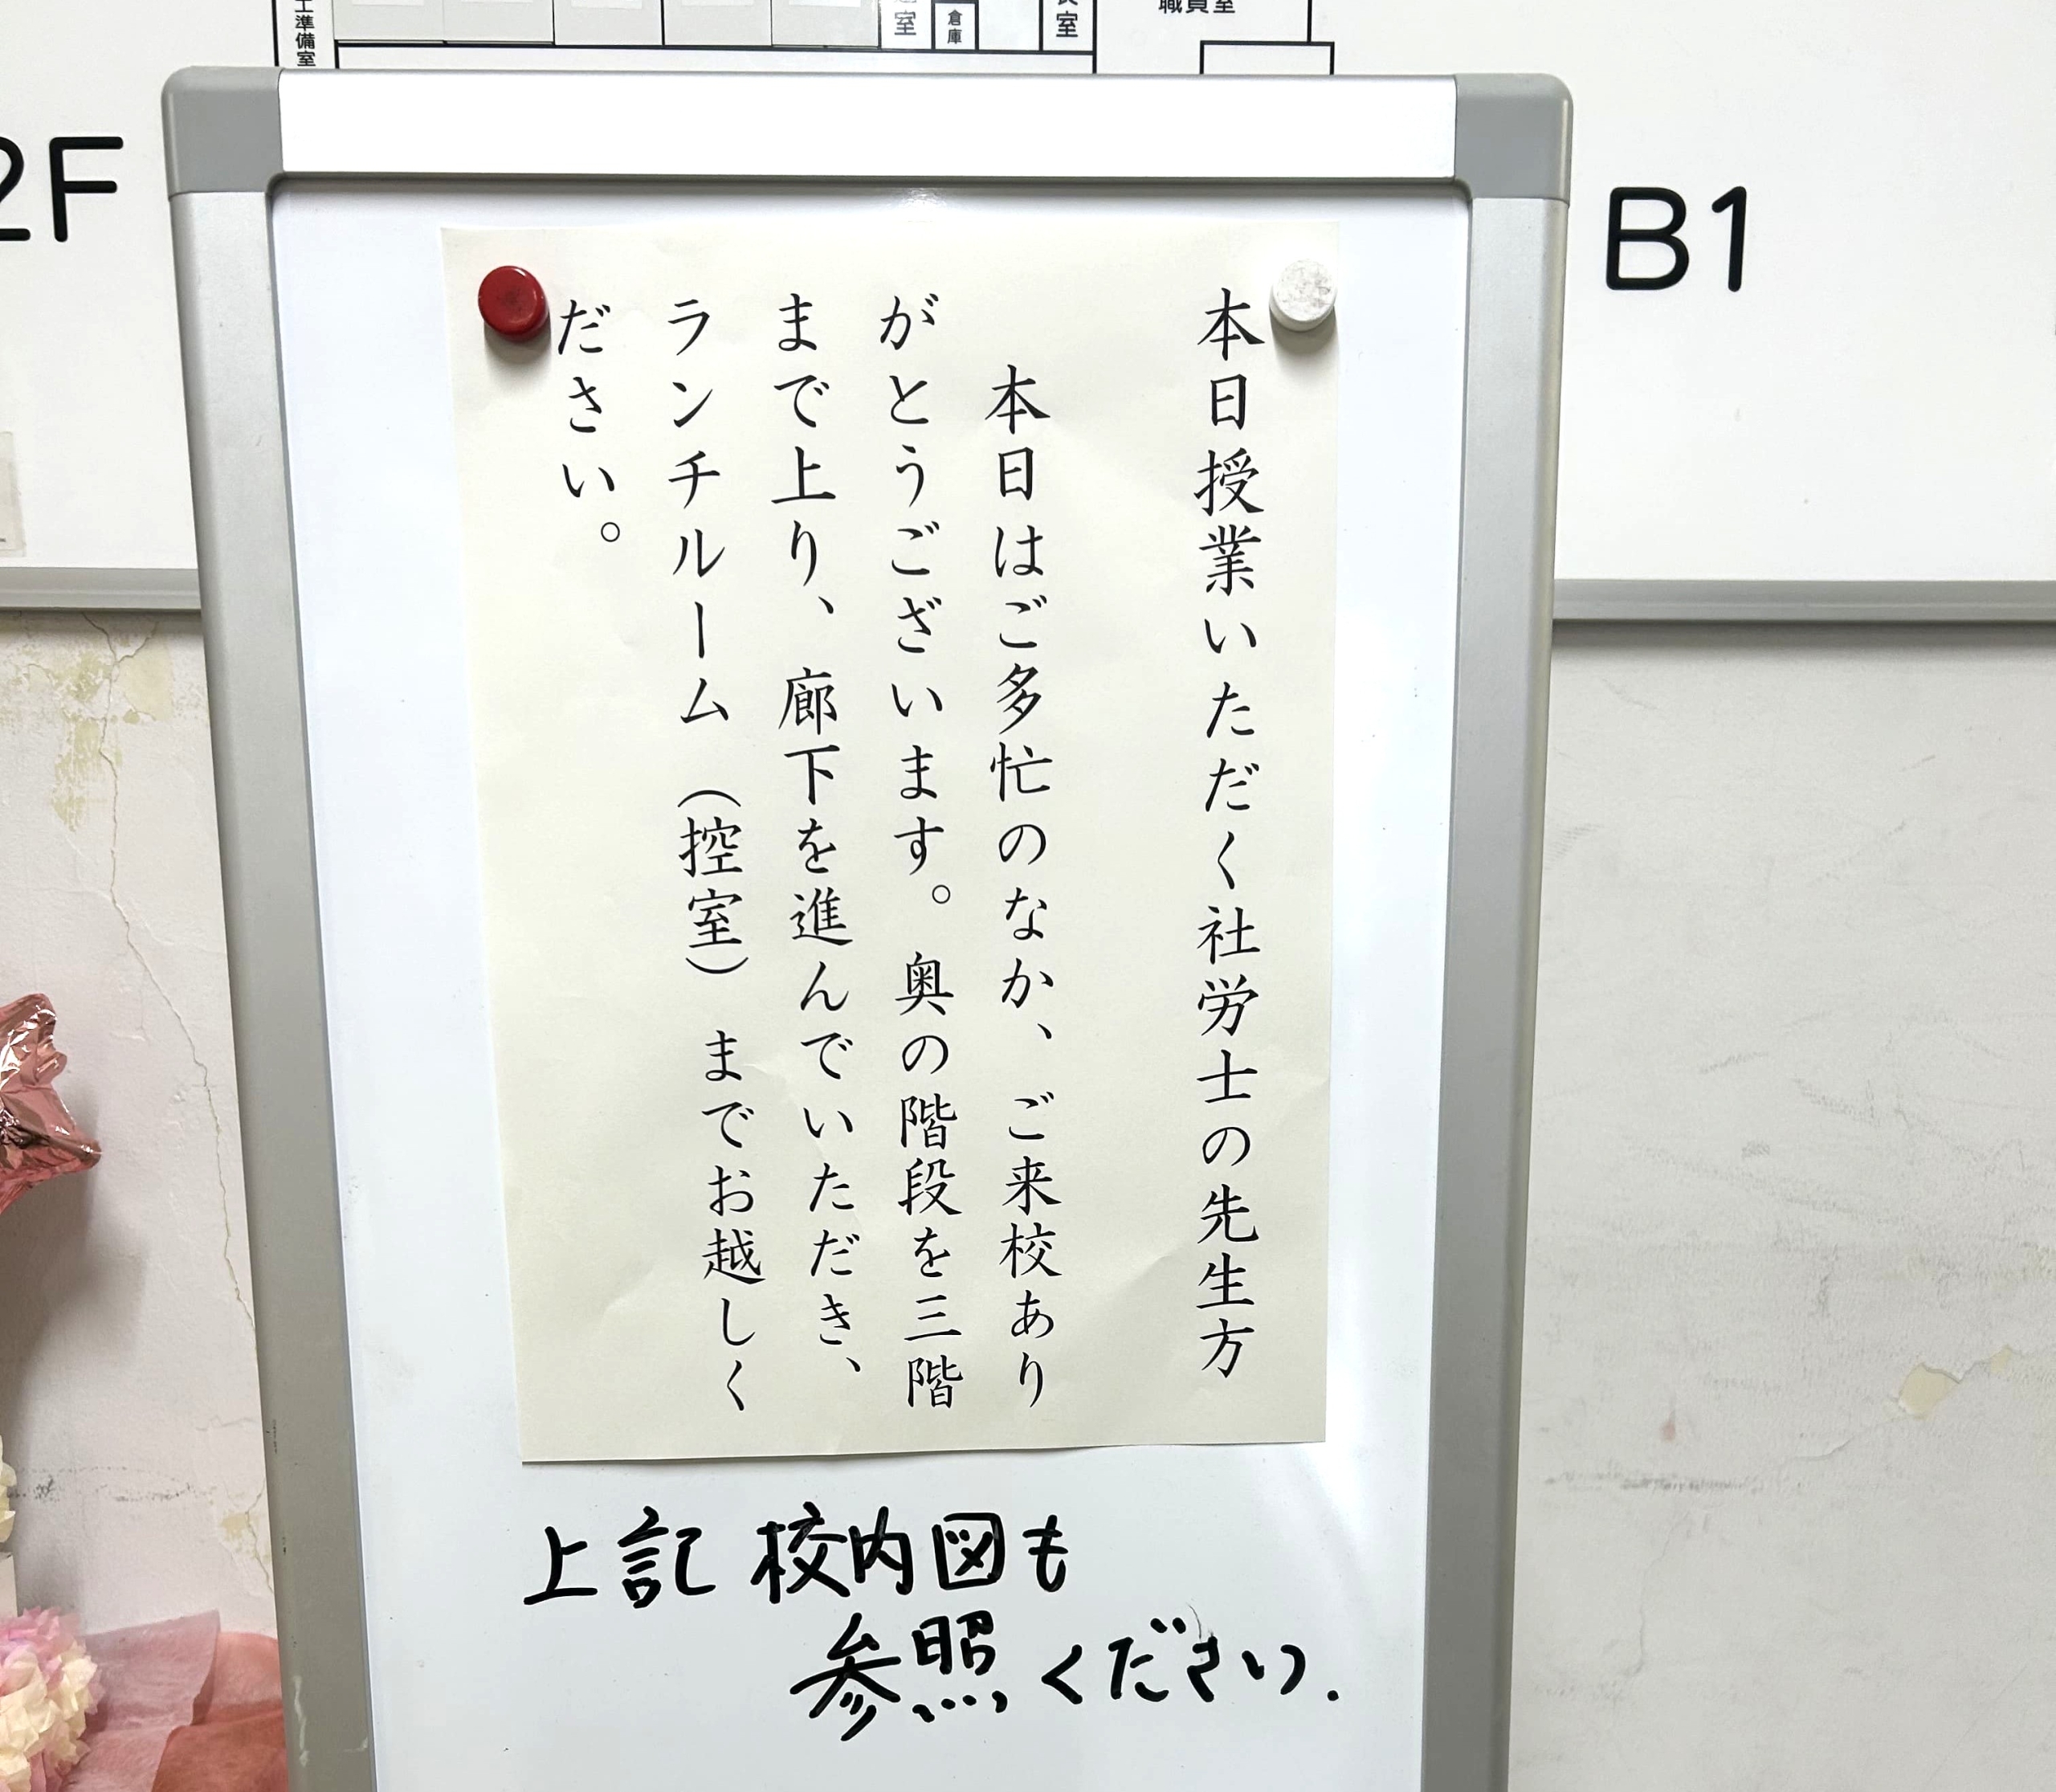 準備室
室
倉庫
室
職員室
2F
B1
本日授業いただく社労士の先生方
本日はご多忙のなか、ご来校あり
がとうございます。奥の階段を三階
まで上り、廊下を進んでいただき、
ランチルーム（控室）までお越しく
ださい。
上記 校内図も
参照ください.